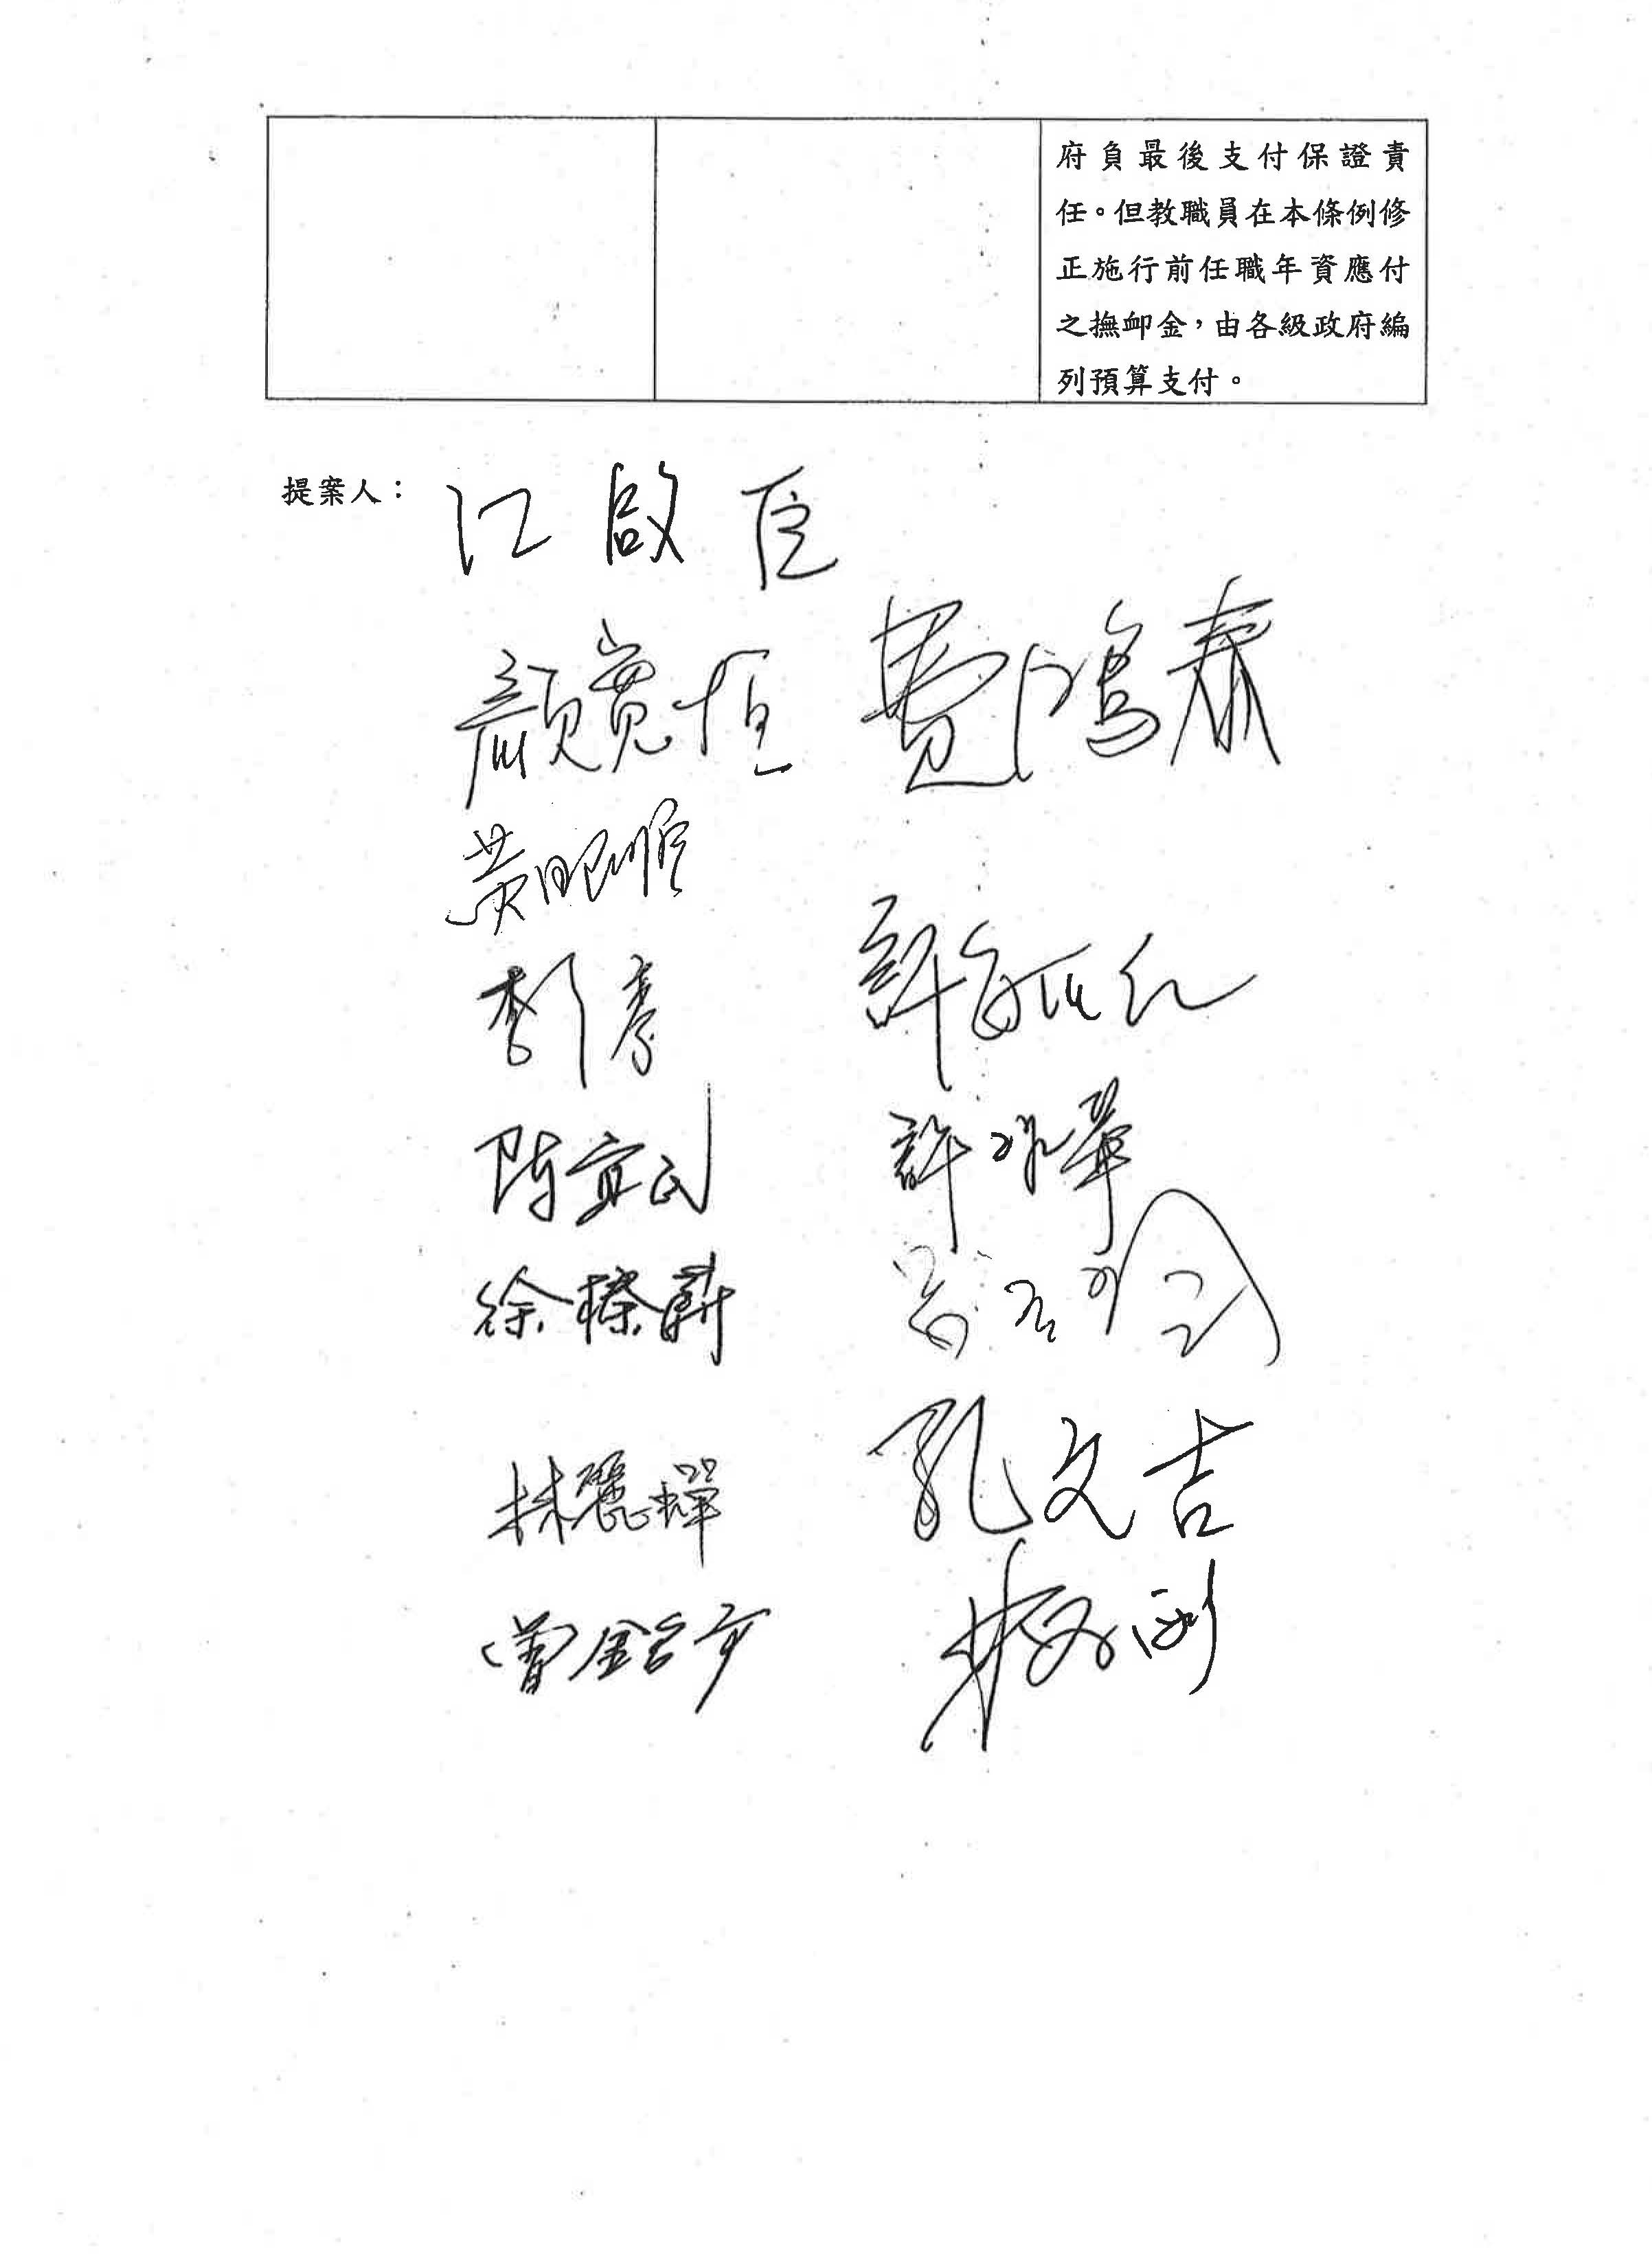 府負最後支付保證責
任。但教職員在本條例修
正施行前任職年資應付
之撫卹金，由各級政府編
列預算支付。
提案人：江啟臣
顏寬恒 費鴻泰
黃昭順
李彥秀 許毓仁
陳宜民 許淑華
徐榛蔚
林麗蟬 孔文吉
曾銘宗